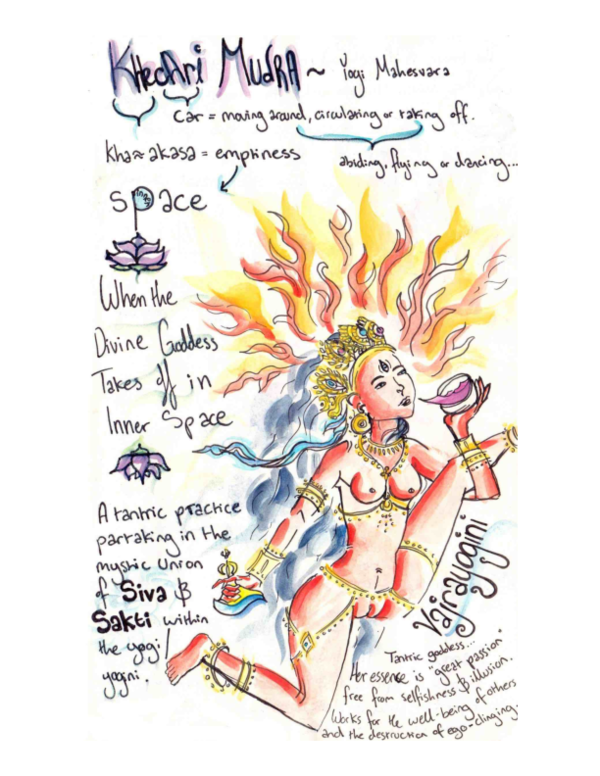 KhecAri MudRA ~ Yogi Mahesvara
car = moving around, circulating or taking off.
kha ≈ akasa = emptiness
abiding, flying or dancing...
inner
space
When the
Divine Goddess
Takes off in
Inner Space
A tantric practice
partaking in the
mystic union
of Siva &
Sakti within
the yogi/
yogini.
Vajrayogini
Tantric goddess...
Her essence is "great passion"
free from selfishness & illusion.
Works for the well-being of others
and the destruction of ego-clinging.